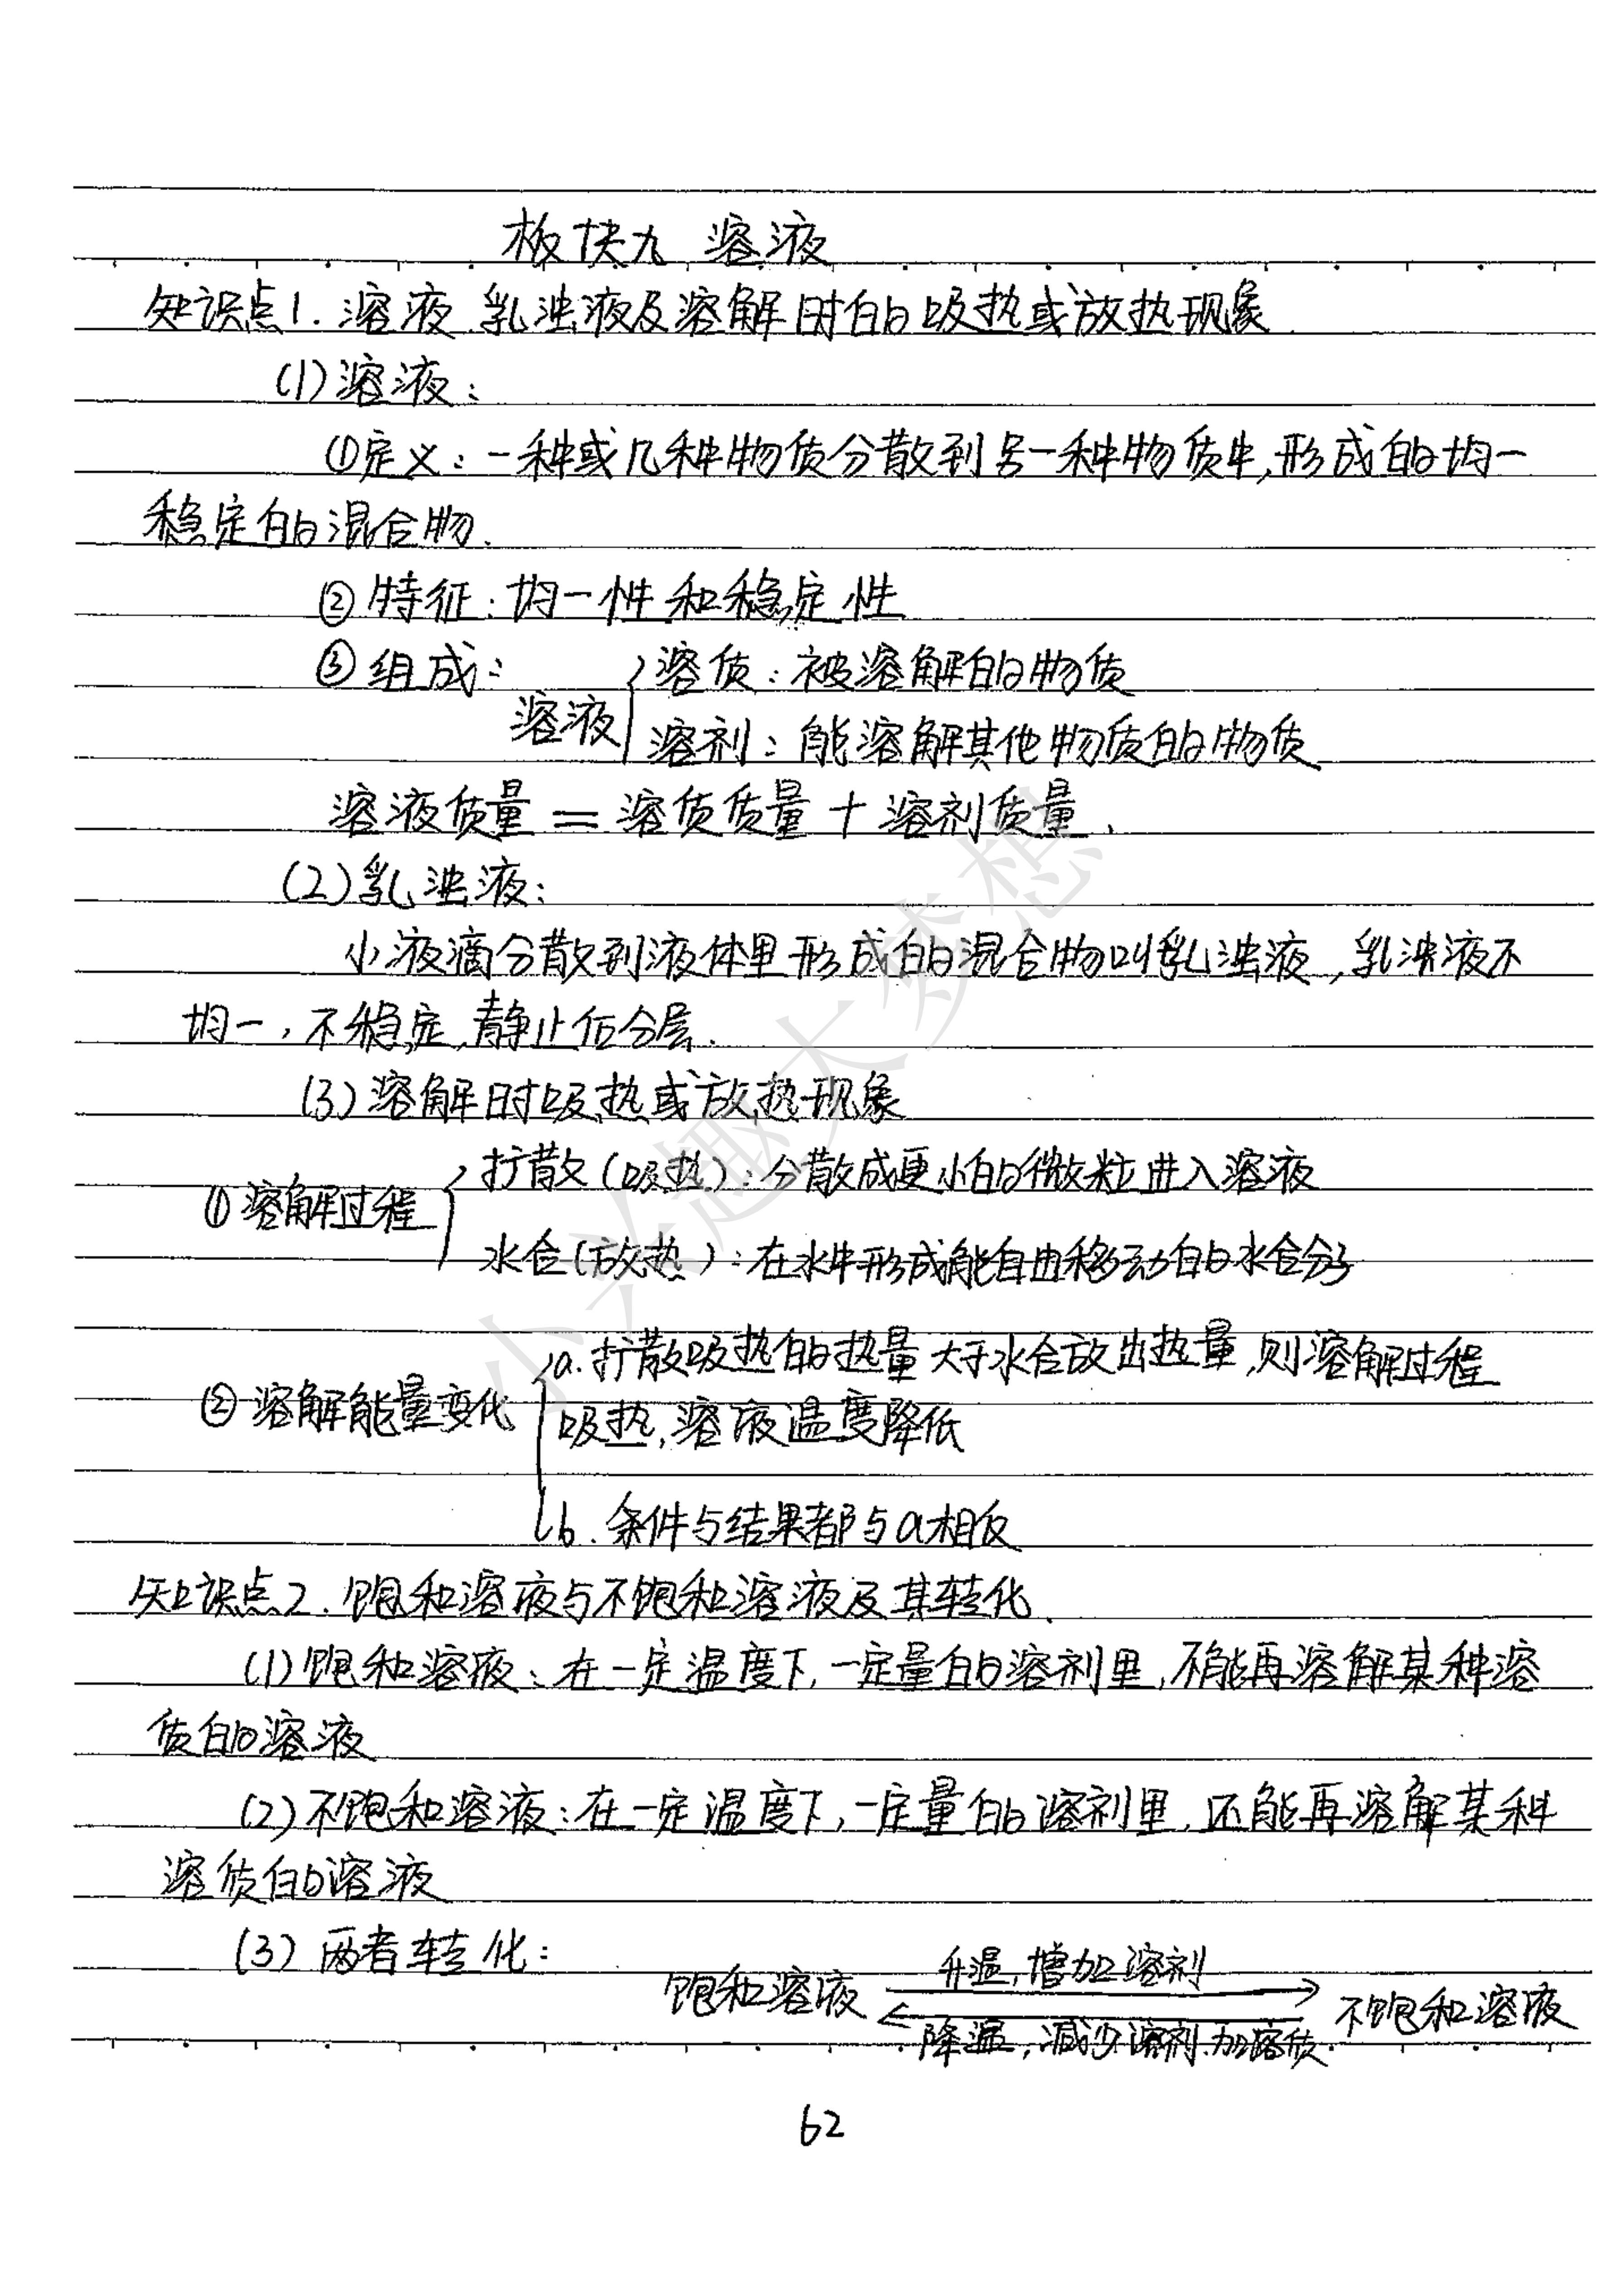 板块九 溶液
知识点1. 溶液、乳浊液及溶解时的吸热或放热现象
(1)溶液:
①定义:一种或几种物质分散到另一种物质中,形成的均一
稳定的混合物.
②特征:均一性和稳定性
③组成:
溶质:被溶解的物质
溶液
溶剂:能溶解其他物质的物质
溶液质量 = 溶质质量 + 溶剂质量.
(2)乳浊液:
小液滴分散到液体里形成的混合物叫乳浊液,乳浊液不
均一,不稳定,静止后分层.
(3)溶解时吸热或放热现象
扩散(吸热):分散成更小的微粒进入溶液
①溶解过程
水合(放热):在水中形成能自由移动的水合分子
a.扩散吸热的热量大于水合放出热量,则溶解过程
②溶解能量变化
吸热,溶液温度降低
b.条件与结果都与a相反
知识点2.饱和溶液与不饱和溶液及其转化.
(1)饱和溶液:在一定温度下,一定量的溶剂里,不能再溶解某种溶
质的溶液
(2)不饱和溶液:在一定温度下,一定量的溶剂里,还能再溶解某种
溶质的溶液
(3)两者转化:
升温,增加溶剂
饱和溶液 ⇌ 不饱和溶液
降温,减少溶剂、加溶质
62
小兴趣大梦想